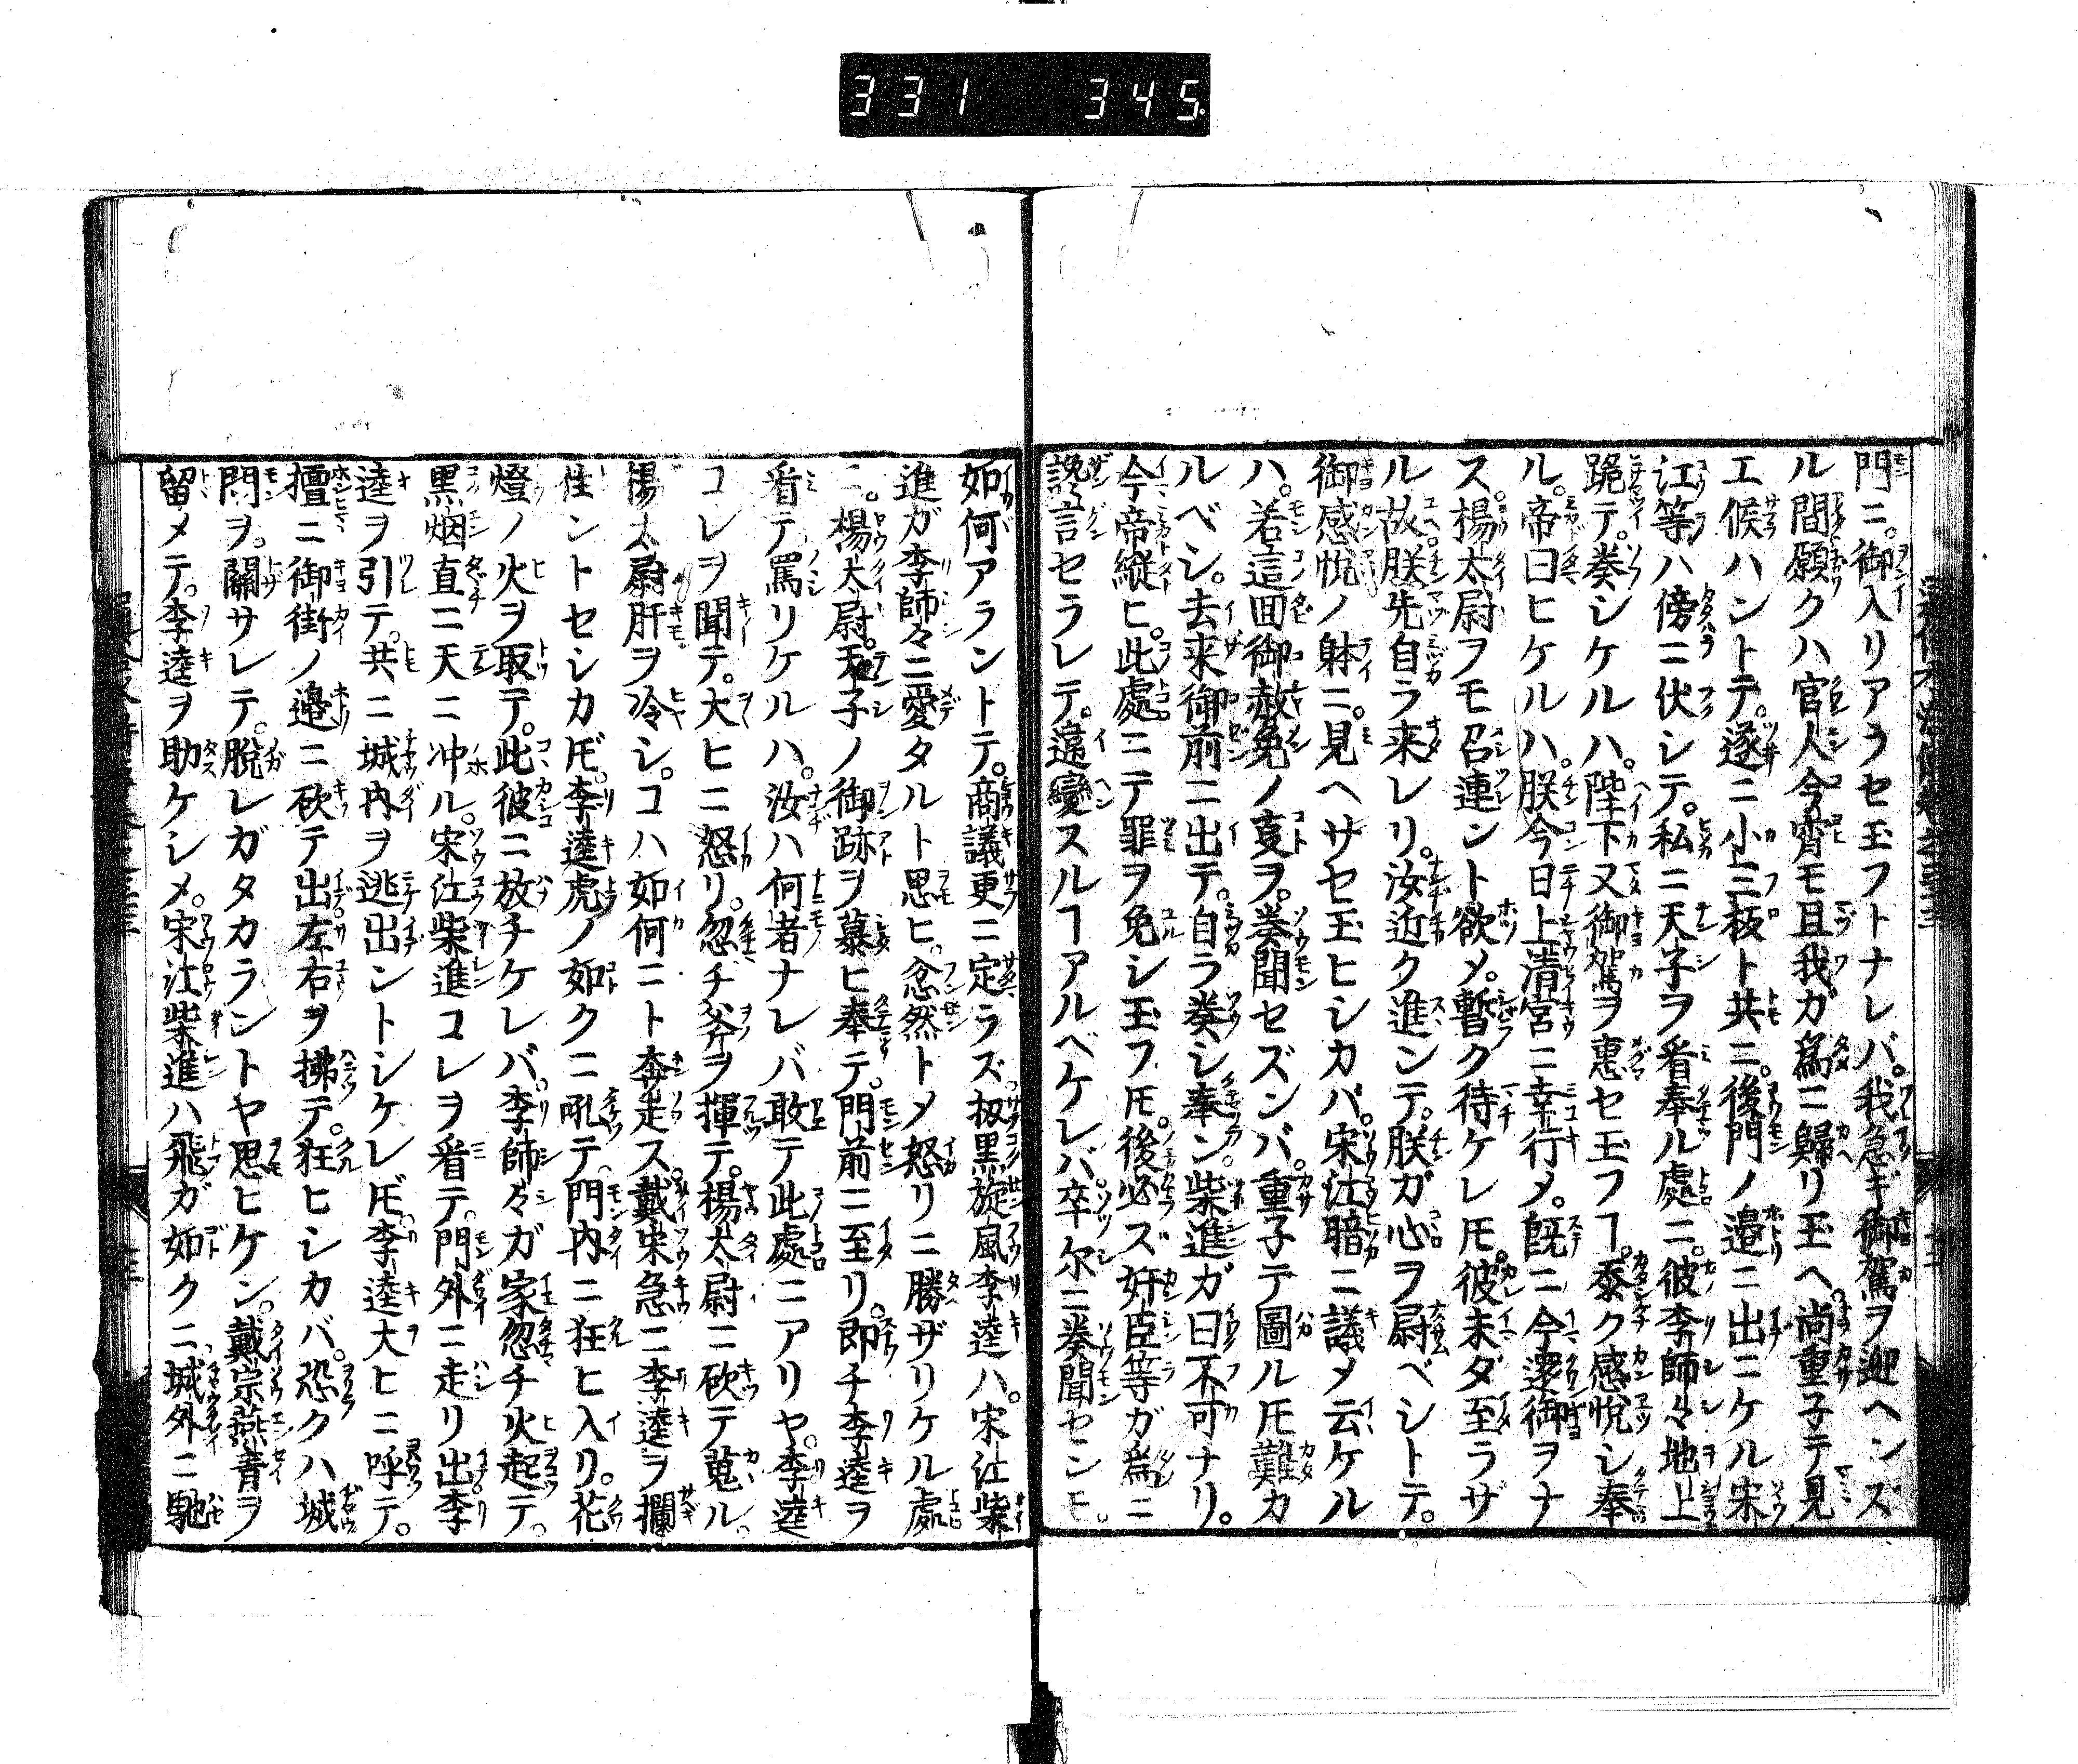 331 345
門ニ。御入リアラセ玉フトナレバ。我急ギ御駕ヲ迎ヘンズ
ル間願クハ官人今宵モ且我ガ爲ニ歸リ玉ヘ。尚重子テ見
エ候ハントテ。遂ニ小三板ト共ニ。後門ノ邉ニ出ニケル宋
江等ハ傍ニ伏シテ。私ニ天子ヲ看奉ル處ニ。彼李師々地上
跪テ。奏シケルハ。陛下又御駕ヲ惠セ玉フヿ。忝ク感悅シ奉
ル。帝曰ヒケルハ。朕今日上清宮ニ幸行メ。既ニ今還御ヲナ
ス。楊太尉ヲモ召連ント欲メ。暫ク待ケレ𪜈。彼未ダ至ラザ
ル故朕先自ラ来レリ。汝近ク進ンデ。朕ガ心ヲ慰ベシトテ。
御感悅ノ躰ニ。見ヘサセ玉ヒシカバ。宋江暗ニ議メ云ケル
ハ。若這回御赦免ノ㕝ヲ。奏聞セズンバ。重子テ圖ル𪜈難カ
ルベシ。去来御前ニ出テ。自ラ奏シ奉ン。柴進ガ曰不可ナリ。
今帝縱ヒ。此處ニテ罪ヲ免シ玉フ𪜈。後必ズ奸臣等ガ爲ニ
讒言セラレテ。違變スルヿアルベケレバ。卒尓ニ奏聞センモ。
如何アラントテ。商議更ニ定ラズ扨黒旋風李逵ハ。宋江柴
進ガ李師々ニ愛タルト思ヒ。忿然トメ怒リニ勝ザリケル處
ニ。楊太尉。天子ノ御跡ヲ慕ヒ奉テ。門前ニ至リ。即チ李逵ヲ
看テ罵リケルハ。汝ハ何者ナレバ敢テ此處ニアリヤ。李逵
コレヲ聞テ。大ヒニ怒リ。忽チ斧ヲ揮テ。楊太尉ニ砍テ蒐ル。
楊太尉肝ヲ冷シ。コハ如何ニト奔走ス。戴宋急ニ李逵ヲ攔
住ントセシカ𪜈。李逵虎ノ如クニ吼テ。門内ニ狂ヒ入リ。花
燈ノ火ヲ取テ。此彼ニ放チケレバ。李師々ガ家忽チ火起テ。
黒烟直ニ天ニ冲ル。宋江柴進コレヲ看テ。門外ニ走リ出李
逵ヲ引テ。共ニ城内ヲ逃出ントシケレ𪜈。李逵大ヒニ呼テ。
擅ニ御街ノ邉ニ砍テ出左右ヲ拂テ。狂ヒシカバ。恐クハ城
門ヲ。關サレテ。脱レガタカラントヤ思ヒケン。戴宗燕青ヲ
留メテ。李逵ヲ助ケシメ。宋江柴進ハ飛ガ如クニ城外ニ馳